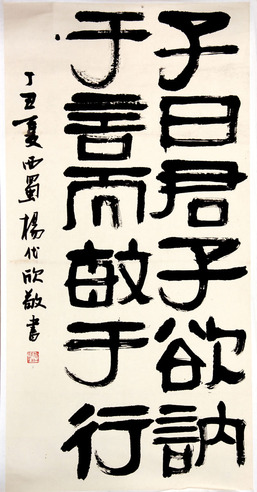 子曰君子欲訥
于言而敏于行
丁丑夏西蜀楊代欣敬書